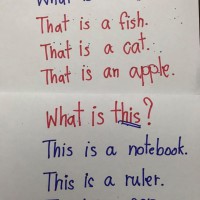 What is
That is a fish.
That is a cat.
That is an apple.
What is this?
This is a notebook.
This is a ruler.